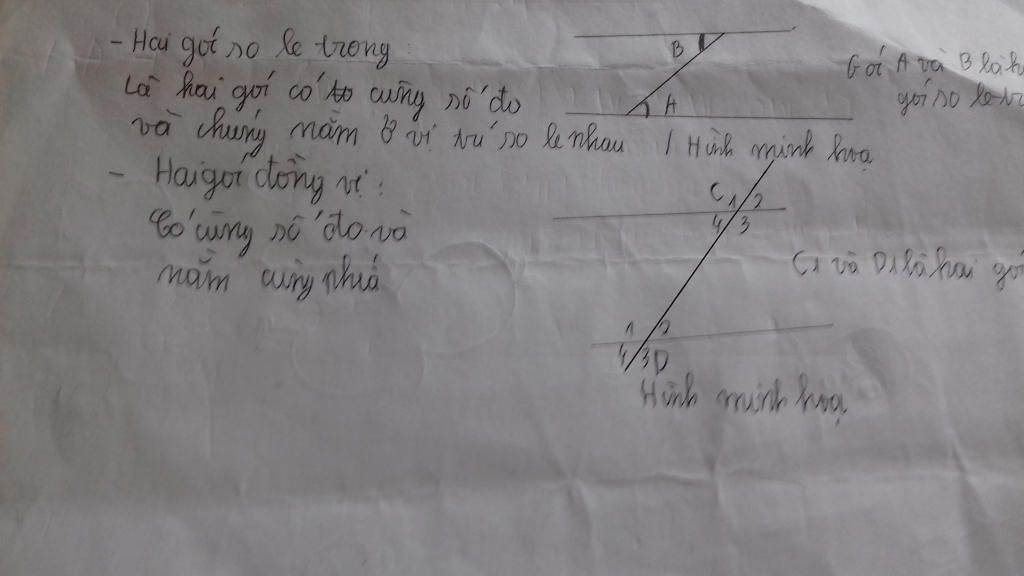 - Hai gót so le trong :
Là hai gót có to cùng số đo
và chúng nằm ở vị trí so le nhau
B
A
Gót A và B là h
gót so le tr
/ Hình minh hoạ
- Hai gót đồng vị :
Có cùng số đo và
nằm cùng phiá
C 1 2
4 3
C1 và D1 là hai gót
1 2
4 3 D
Hình minh hoạ